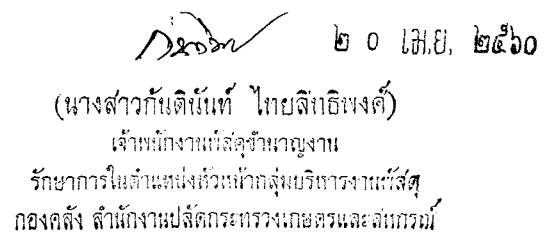 ๒๐ เม.ย. ๒๕๖๐
(นางสาวกันตินันท์ ไทยสิทธิพงศ์)
เจ้าพนักงานพัสดุชำนาญงาน
รักษาการในตำแหน่งหัวหน้ากลุ่มบริหารงานพัสดุ
กองคลัง สำนักงานปลัดกระทรวงเกษตรและสหกรณ์